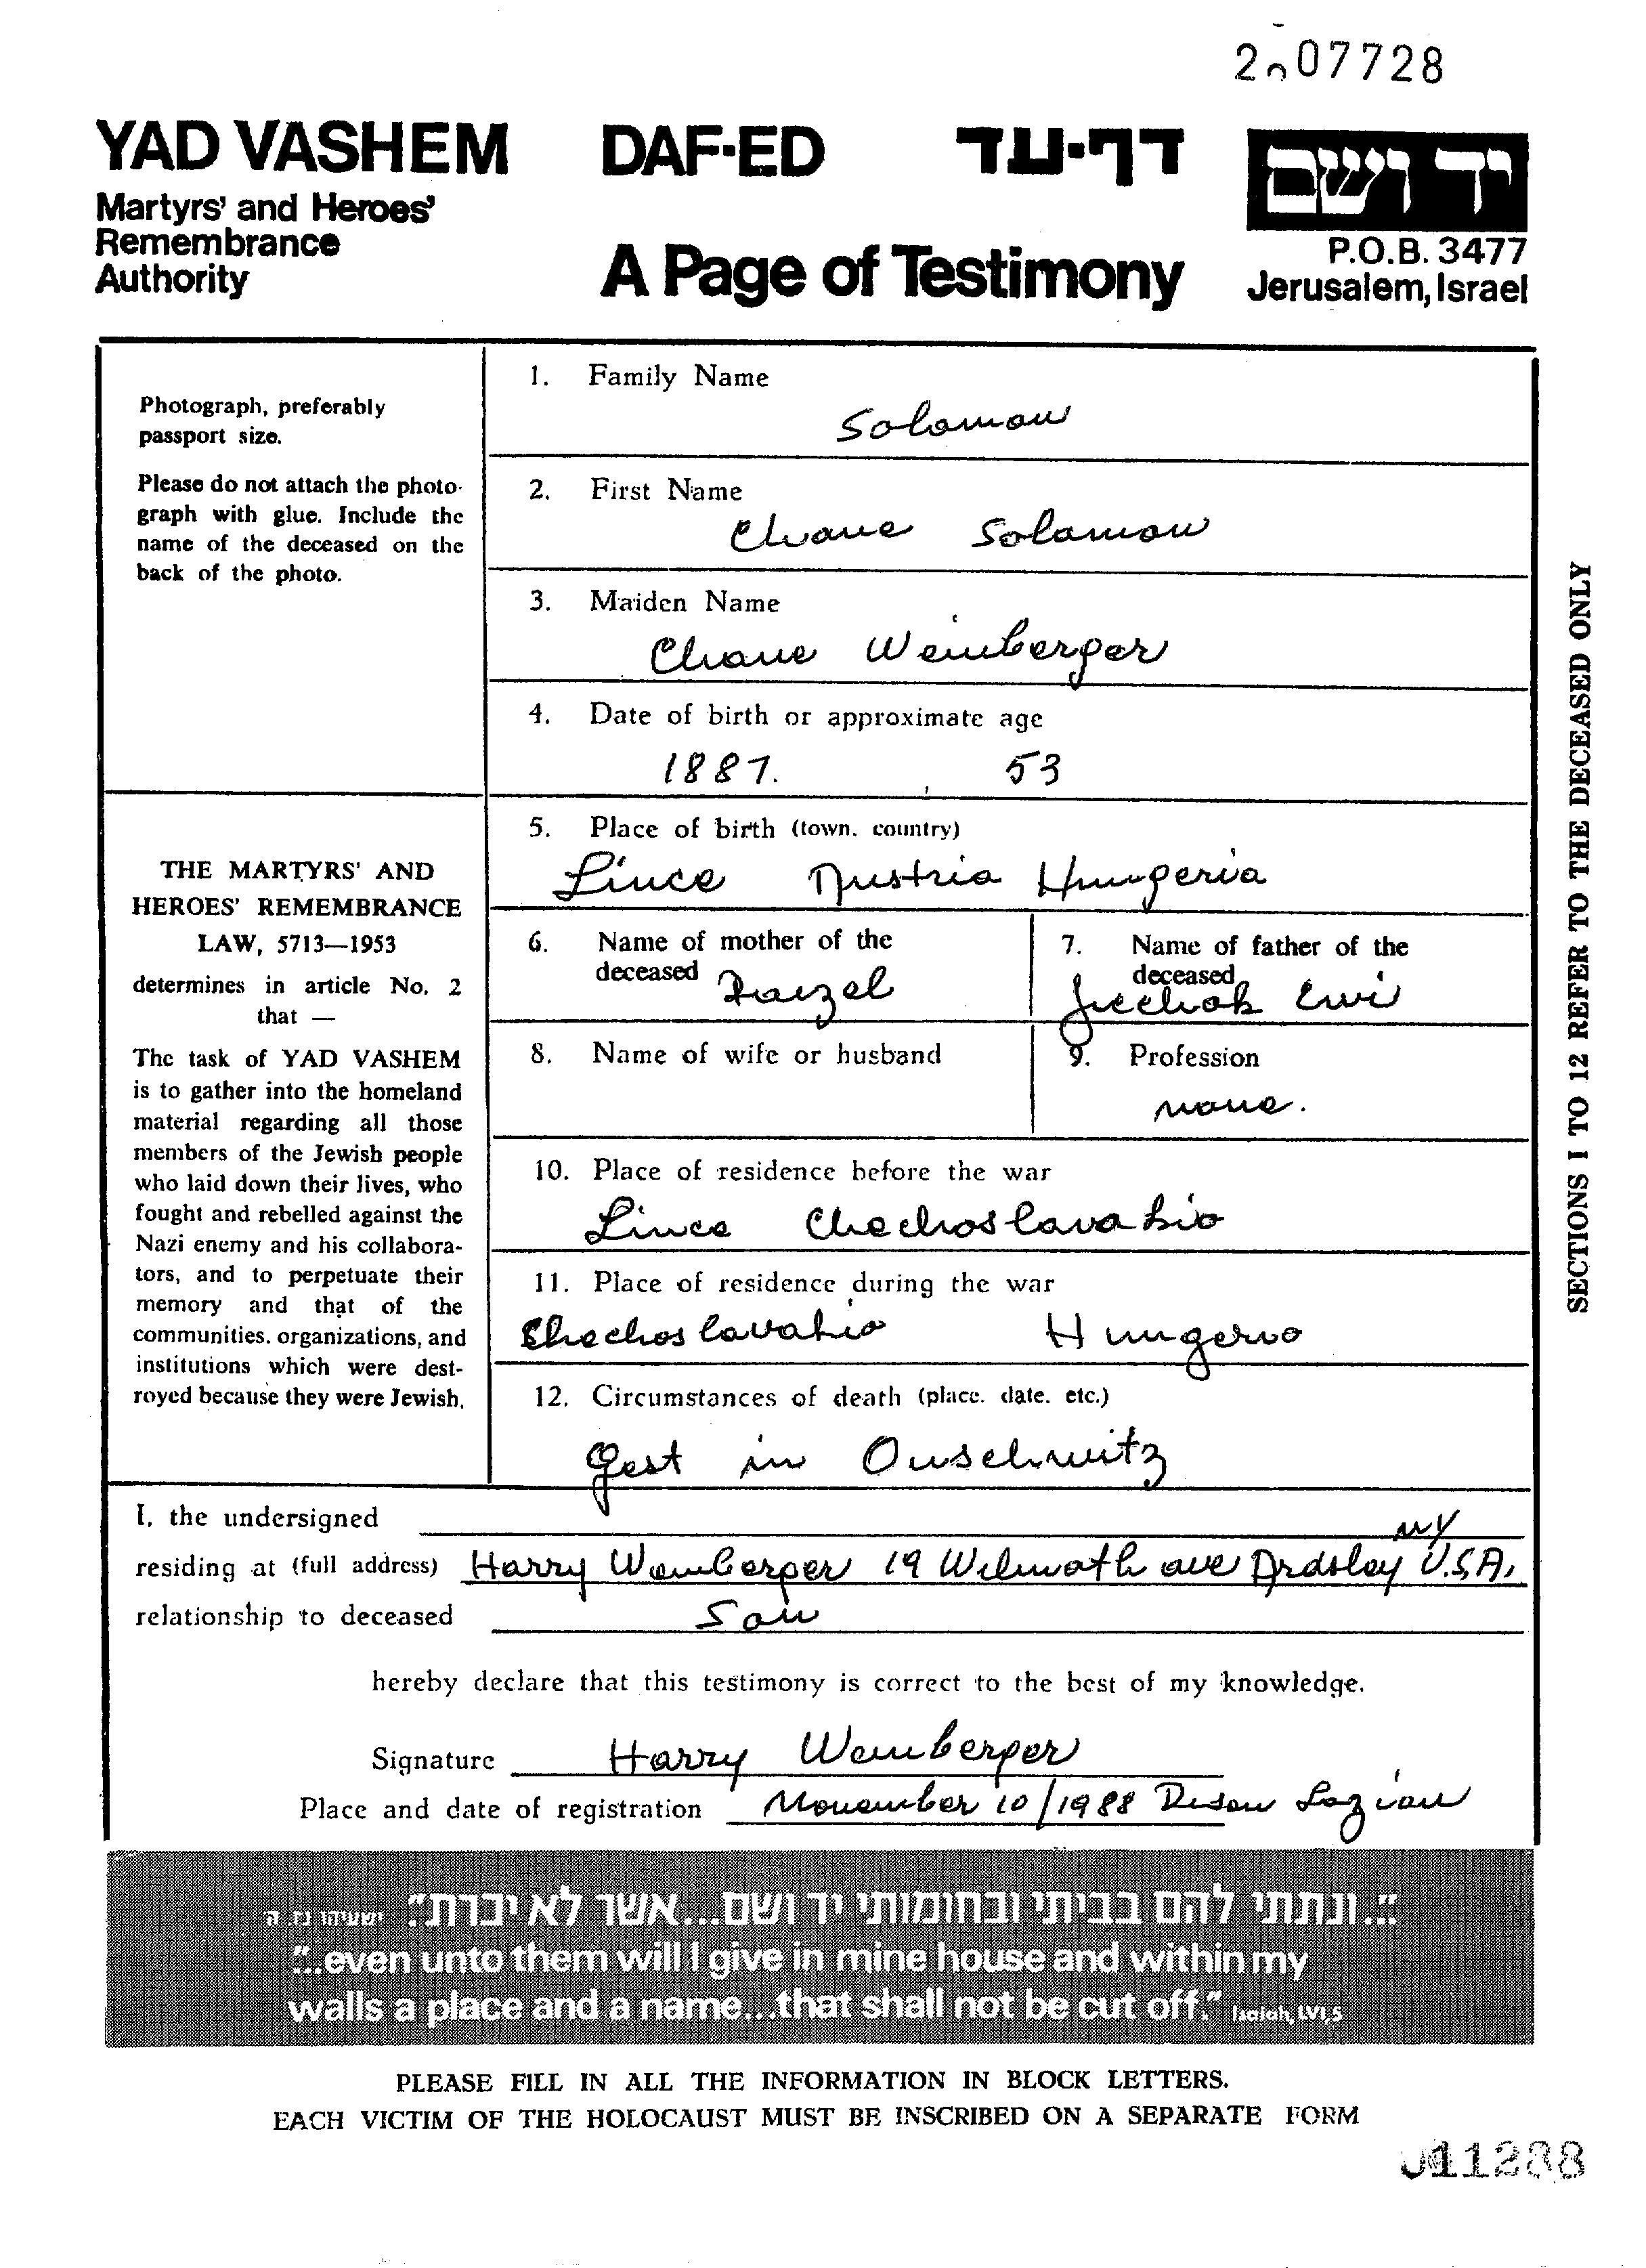 2 07728
YAD VASHEM DAF-ED דף-עד יד ושם
Martyrs' and Heroes'
Remembrance
Authority
A Page of Testimony
P.O.B. 3477
Jerusalem, Israel
Photograph, preferably
passport size.
Please do not attach the photo-
graph with glue. Include the
name of the deceased on the
back of the photo.
THE MARTYRS' AND
HEROES' REMEMBRANCE
LAW, 5713—1953
determines in article No. 2
that —
The task of YAD VASHEM
is to gather into the homeland
material regarding all those
members of the Jewish people
who laid down their lives, who
fought and rebelled against the
Nazi enemy and his collabora-
tors, and to perpetuate their
memory and that of the
communities, organizations, and
institutions which were dest-
royed because they were Jewish.
1. Family Name
Solomon
2. First Name
Chane Solamon
3. Maiden Name
Chane Weinberger
4. Date of birth or approximate age
1887. 53
5. Place of birth (town, country)
Lince Austria Hungeria
6. Name of mother of the
deceased
7. Name of father of the
deceased
8. Name of wife or husband
9. Profession
none.
10. Place of residence before the war
Lince Chechoslavakio
11. Place of residence during the war
Chechoslavakio Hungerio
12. Circumstances of death (place, date, etc.)
Gest in Ouschwitz
SECTIONS 1 TO 12 REFER TO THE DECEASED ONLY
I, the undersigned
NY
residing at (full address) Harry Weinberger 19 Wilmoth ave Ardsley U.S.A.
relationship to deceased Son
hereby declare that this testimony is correct to the best of my knowledge.
Signature Harry Weinberger
Place and date of registration November 10/1988
"...ונתתי להם בביתי ובחומותי יד ושם...אשר לא יכרת". ישעיהו נו, ה
"...even unto them will I give in mine house and within my
walls a place and a name...that shall not be cut off." Isaiah, LVI,5
PLEASE FILL IN ALL THE INFORMATION IN BLOCK LETTERS.
EACH VICTIM OF THE HOLOCAUST MUST BE INSCRIBED ON A SEPARATE FORM